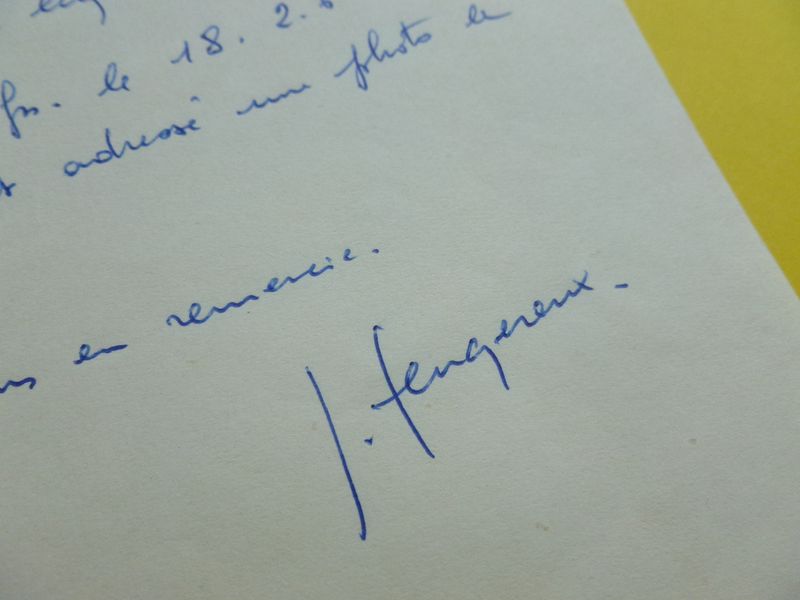 le 18. 2.
adressé une photo le
en remercie.
J. Feugereux.